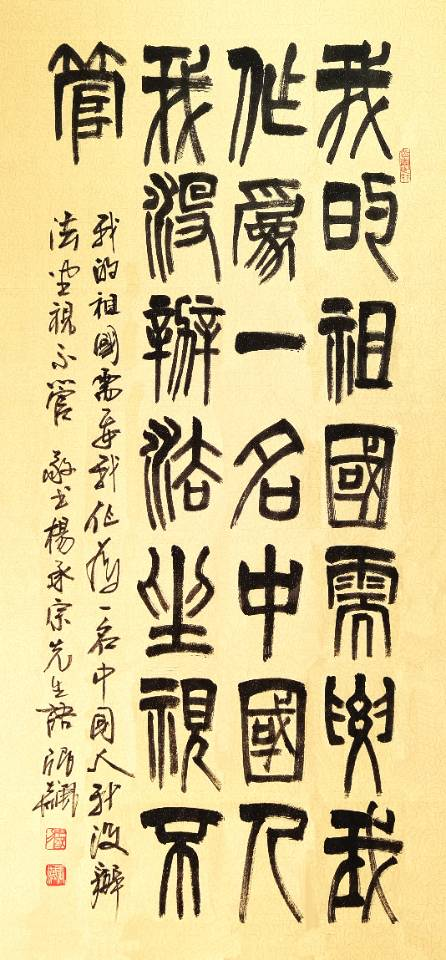 我的祖國需要我
作爲一名中國人
我沒辦法坐視不
管
我的祖國需要我作爲一名中國人我沒辦
法坐視不管 敬书楊承宗先生語